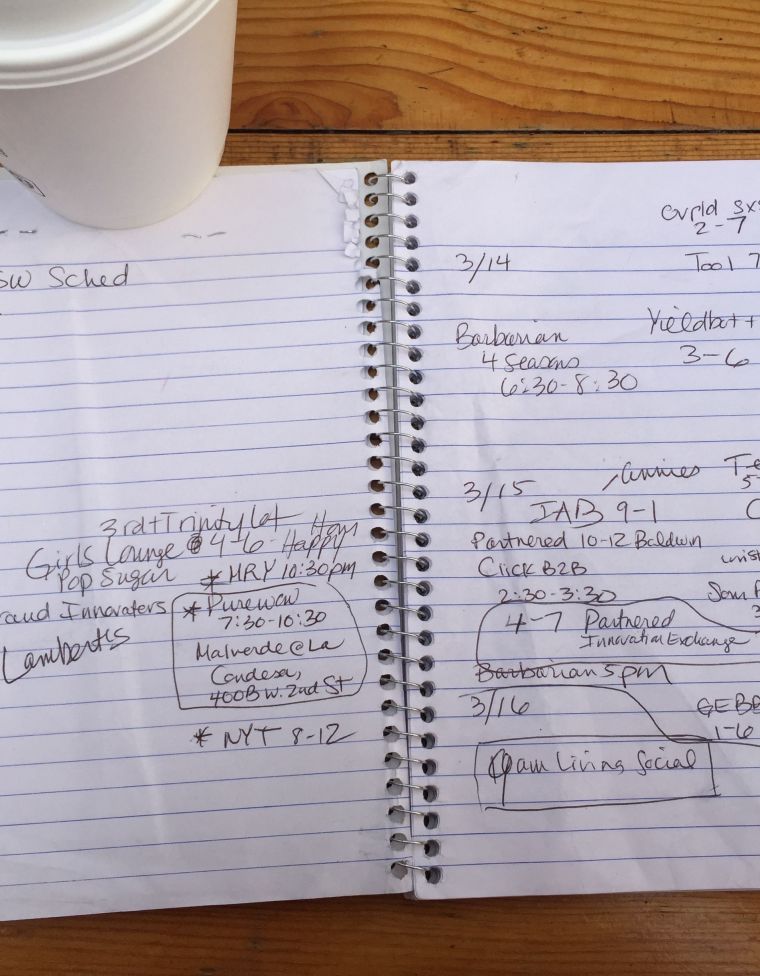 SW Sched
3rd + Trinity Lot
Girls Lounge @ 4-6 - Happy Hour
Pop Sugar * MRY 10:30pm
Innovaters
* Purewow
7:30-10:30
Lamberts
Malverde @ La
Condesa,
400B W. 2nd St
* NYT 8-12
2-7
3/14
Tool 7
Barbarian
4 Seasons
6:30-8:30
Yieldbot
3-6
3/15
Annies
IAB 9-1
Partnered 10-12 Baldwin
Click B2B
2:30-3:30
4-7 Partnered
Innovation Exchange
Barbarian 5pm
3/16
1-6
am Living Social